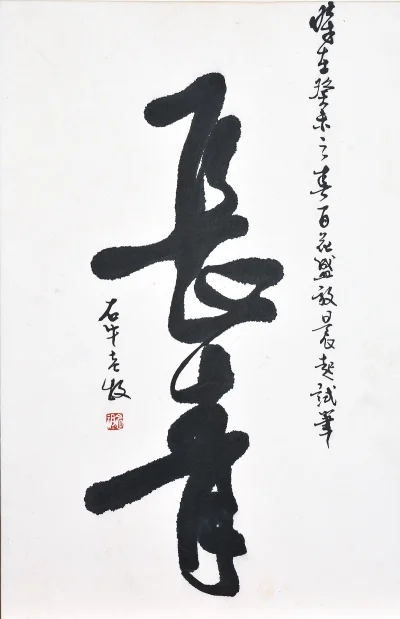 時在癸未之春百花盛放晨起試筆
長青
石牛老牧